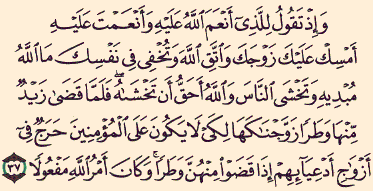 وَإِذْ تَقُولُ لِلَّذِىٓ أَنْعَمَ ٱللَّهُ عَلَيْهِ وَأَنْعَمْتَ عَلَيْهِ
أَمْسِكْ عَلَيْكَ زَوْجَكَ وَٱتَّقِ ٱللَّهَ وَتُخْفِى فِى نَفْسِكَ مَا ٱللَّهُ
مُبْدِيهِ وَتَخْشَى ٱلنَّاسَ وَٱللَّهُ أَحَقُّ أَن تَخْشَىٰهُ ۖ فَلَمَّا قَضَىٰ زَيْدٌ
مِّنْهَا وَطَرًا زَوَّجْنَٰكَهَا لِكَىْ لَا يَكُونَ عَلَى ٱلْمُؤْمِنِينَ حَرَجٌ فِىٓ
أَزْوَٰجِ أَدْعِيَآئِهِمْ إِذَا قَضَوْا۟ مِنْهُنَّ وَطَرًا ۚ وَكَانَ أَمْرُ ٱللَّهِ مَفْعُولًا ٣٧